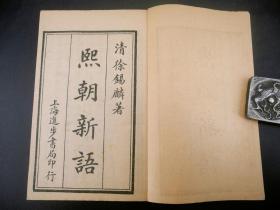 清徐錫麟著
熙朝新語
上海進步書局印行